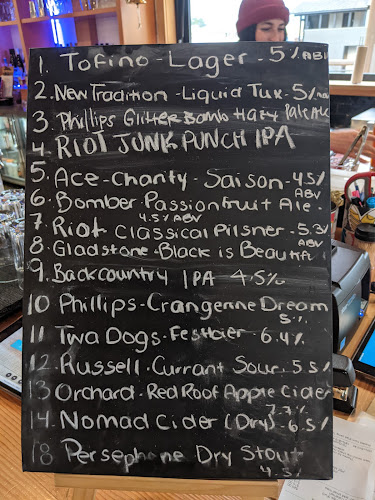 1. Tofino - Lager - 5% ABV
2. New Tradition - Liquid Tux - 5% ABV
3. Phillips Glitter Bomb Hazy Pale Ale
4 RIOT JUNK PUNCH IPA
5. Ace - Charity - Saison - 4.5% ABV
6. Bomber Passionfruit Ale.
4.5% ABV
7. Riot Classical Pilsner - 5.3% ABV
8. Gladstone - Black is Beautiful
9. Backcountry IPA 4.5%
10 Phillips - Crangerine Dream
5%
11 Twa Dogs - Festbier - 6.4%
12. Russell - Currant Sour. 5.5%
13 Orchard - Red Roof Apple Cider
7.7%
14. Nomad Cider (Dry) - 6.5%
18 Persephone Dry Stout
4.5%